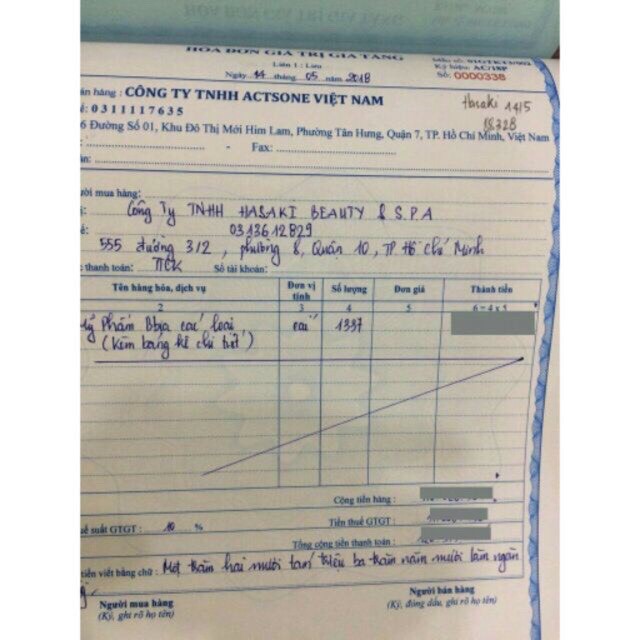 HÓA ĐƠN GIÁ TRỊ GIA TĂNG
Liên 1 : Lưu
Ngày 14 tháng 05 năm 2018
Ký hiệu: AC/18P
Số: 0000338
án hàng : CÔNG TY TNHH ACTSONE VIỆT NAM
Hasaki 14/5
18.328
ế: 0311117635
6 Đường Số 01, Khu Đô Thị Mới Him Lam, Phường Tân Hưng, Quận 7, TP. Hồ Chí Minh, Việt Nam
- Fax:
ười mua hàng:
Công Ty TNHH HASAKI BEAUTY & S.P.A
0313612829
555 đường 3/2, phường 8, Quận 10, TP Hồ Chí Minh
thanh toán: TTCK Số tài khoản:
Tên hàng hóa, dịch vụ Đơn vị tính Số lượng Đơn giá Thành tiền
2 3 4 5 6=4x5
Phẩm Bbia các loại cái 1337
(Kèm bảng kê chi tiết)
Cộng tiền hàng :
ế suất GTGT : 10 % Tiền thuế GTGT :
Tổng cộng tiền thanh toán :
tiền viết bằng chữ : Một trăm hai mươi tám triệu ba trăm năm mươi lăm ngàn
Người mua hàng Người bán hàng
(Ký, ghi rõ họ tên) (Ký, đóng dấu, ghi rõ họ tên)